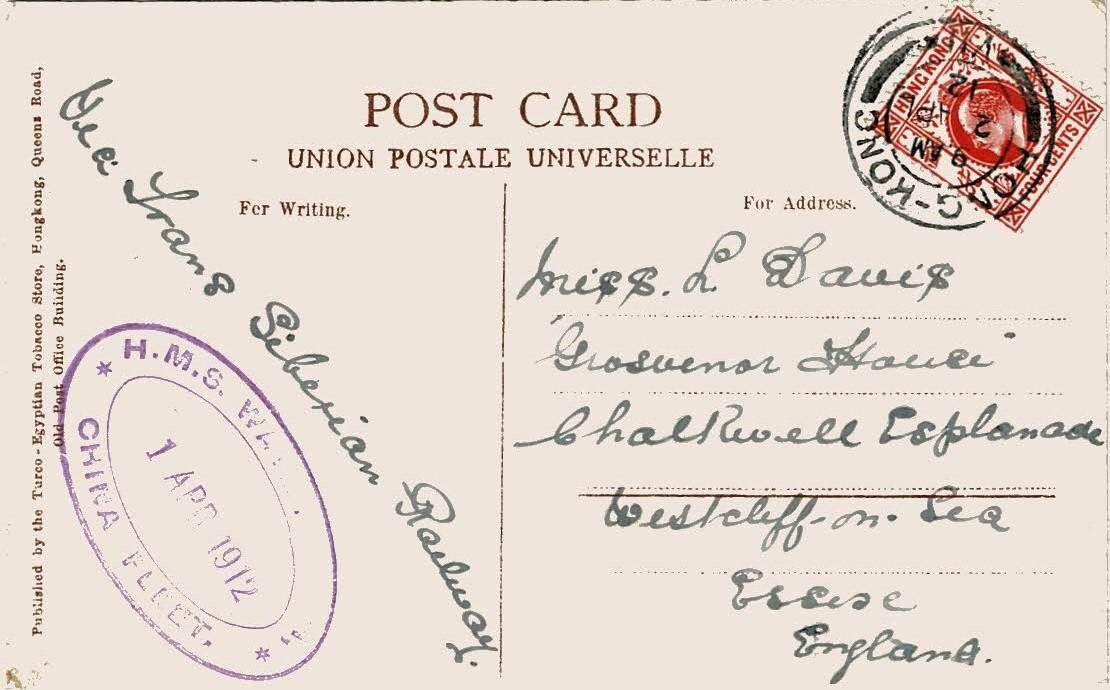 POST CARD
UNION POSTALE UNIVERSELLE
For Writing.
For Address.
Published by the Turco-Egyptian Tobacco Store, Hongkong, Queens Road,
Old Post Office Building.
Via Trans Siberian Railway.
H.M.S.
1 APR 1912
CHINA FLEET.
Miss. L. Davis
"Grosvenor House"
Chalkwell Esplanade
Westcliff-on-Sea
Essex
England.
HONG-KONG
9 AM
2 AP
12
HONG KONG
FOUR CENTS